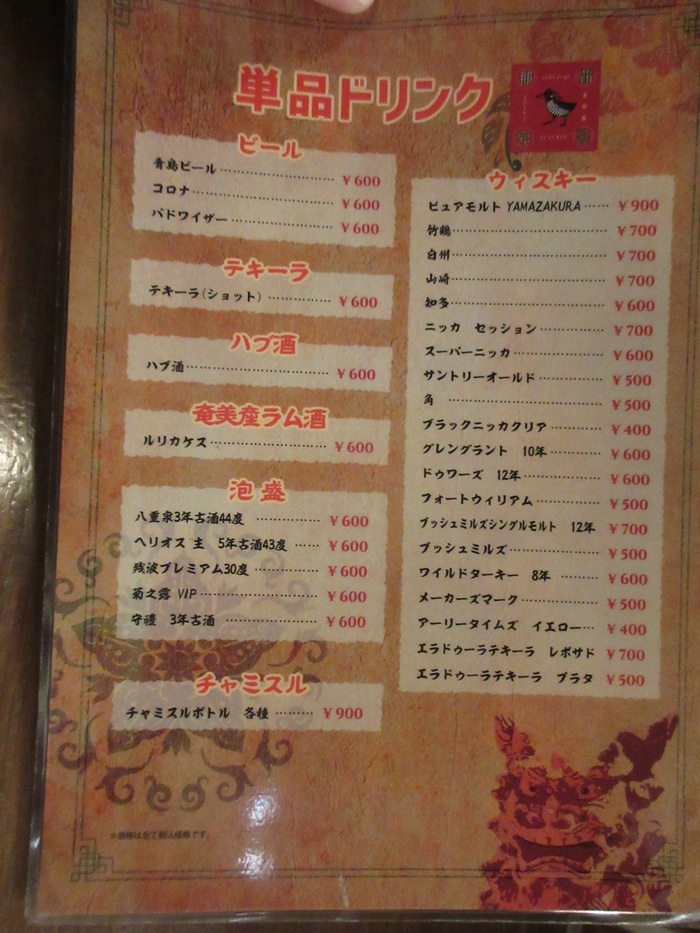 単品ドリンク
ビール
青島ビール ¥600
コロナ ¥600
バドワイザー ¥600
テキーラ
テキーラ(ショット) ¥600
ハブ酒
ハブ酒 ¥600
奄美産ラム酒
ルリカケス ¥600
泡盛
八重泉3年古酒44度 ¥600
ヘリオス 主 5年古酒43度 ¥600
残波プレミアム30度 ¥600
菊之露 VIP ¥600
守禮 3年古酒 ¥600
チャミスル
チャミスルボトル 各種 ¥900
※価格は全て税込価格です。
ウィスキー
ピュアモルト YAMAZAKURA ¥900
竹鶴 ¥700
白州 ¥700
山崎 ¥700
知多 ¥600
ニッカ セッション ¥700
スーパーニッカ ¥600
サントリーオールド ¥500
角 ¥500
ブラックニッカクリア ¥400
グレングラント 10年 ¥600
ドゥワーズ 12年 ¥600
フォートウィリアム ¥500
ブッシュミルズシングルモルト 12年 ¥700
ブッシュミルズ ¥500
ワイルドターキー 8年 ¥600
メーカーズマーク ¥500
アーリータイムズ イエロー ¥400
エラドゥーラテキーラ レポサド ¥700
エラドゥーラテキーラ プラタ ¥500